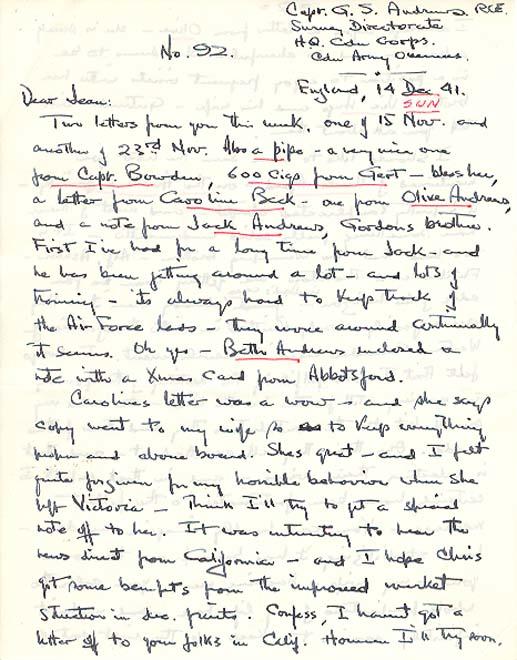 Capt. G. S. Andrews, RCE.
Survey Directorate
H.Q. Cdn Corps.
Cdn Army Overseas.
No. 92.
England, 14 Dec 41.
SUN
Dear Jean:
Two letters from you this week, one of 15 Nov. and
another of 23rd Nov. Also a pipe - a very nice one
from Capt. Bowden, 600 Cigs from Gert - bless her,
a letter from Caroline Beck - one from Olive Andrews,
and a note from Jack Andrews, Gordons brother.
First I've had for a long time from Jack - and
he has been getting around a lot - and lots of
training - its always hard to keep track of
the Air Force lads - they move around continually
it seems. Oh yes - Beth Andrews enclosed a
note with a Xmas Card from Abbotsford.
Carolines letter was a wow - and she says
copy went to my wife so as to keep everything
proper and above board. Shes great - and I felt
quite forgiven for my horrible behavior when she
left Victoria - Think I'll try to get a special
note off to her. It was interesting to hear the
news direct from California - and I hope Chris
got some benefits from the improved market
situation in dec. fruits. Confess, I havnt got a
letter off to your folks in Calif. However I'll try soon.